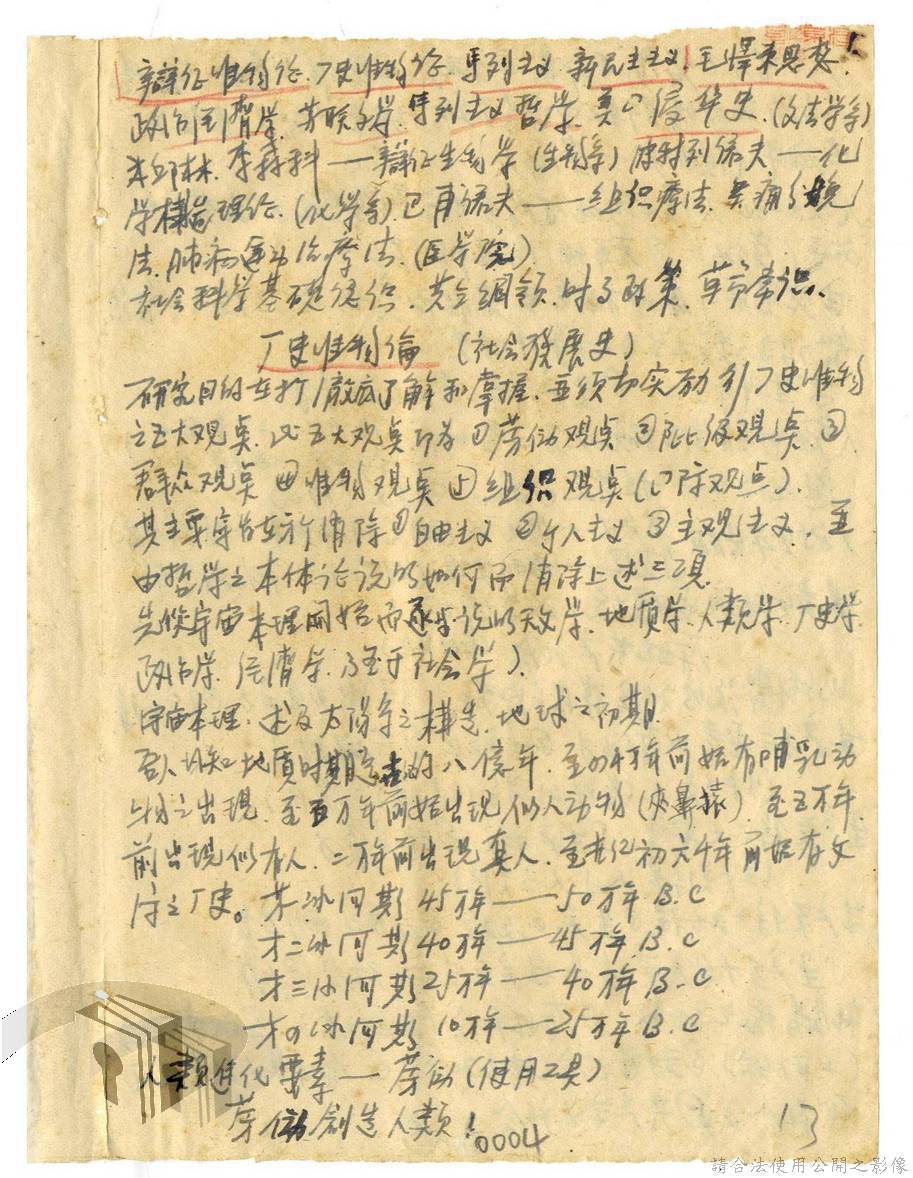 辯征唯物论、厂史唯物论、馬列主义、新民主主义、毛澤東思想、
政治经濟学、苏联文学、馬列主义哲学、美帝侵华史、(文法学系)
米邱林、李森科——辯証生物学(生物系)彼特列绥夫——化
学構造理论、(化学系)巴甫绥夫——组织療法、無痛分娩
法、肺病運动治療法、(医学院)
社会科学基礎知识、共同綱领、时事政策、革命常识、
厂史唯物倫 (社会發展史)
研究目的在於彻底了解和掌握、並须切实劳动、厂史唯物
之五大观点、此五大观点即为①劳动观点 ②阶级观点、③
群众观点 ④唯物观点 ⑤组织观点(国际观点)、
其主要宗旨在於消除①自由主义 ②个人主义 ③主观主义、並
由哲学之本体论说明如何而消除上述三項
先從宇宙本理開始而逐步说明天文学、地质学、人類学、厂史学、
政治学、经濟学、乃至于社会学)
宇宙本理、述及太陽系之構造、地球之初期、
吾人均知地质时期 八億年、至四千万年前始有哺乳动
物之出現、至五百万年前始出现似人动物(夾鼻猿)、至五万年
前出现似 人、二万年前出现真人、至世纪初六千年前始有文
字之厂史。 第一冰河期45万年——50万年B.C
才二冰河期40万年——45万年B.C
才三冰河期25万年——40万年B.C
才四冰河期10万年——25万年B.C
人類進化要素——劳动(使用工具)
劳动創造人類!
0004
13
請合法使用公開之影像